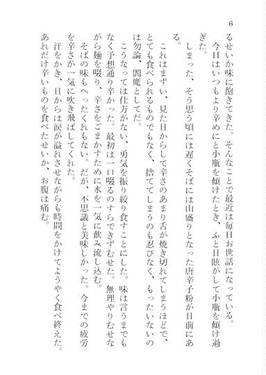 6
るせいか味に飽きてきた。そんなことで最近は毎日お世話になっている。
今日はいつもより辛めにと小瓶を傾けたとき、ふと目眩がして小瓶を傾け過
ぎた。
しまった、そう思う頃には遅くそばには山盛りとなった唐辛子粉が目前にあ
る。
これはまずい、見た目からして辛さのあまり舌が焼き切れてしまうほどで、
とても食べられるものでもなく、捨ててしまうのも忍びなく、もったいないの
は勿論、閻魔としてだ。
こうなっては仕方がない、勇気を振り絞り食すことにした。味は言うまでも
なく予想通り辛かった。最初は一口啜るのすらできずむせた。無理やりむせな
がら麺を啜り、辛さをごまかすために水を一気に飲み流し込む。
そばの味もへったくれもない。だが、不思議と美味しかった。今までの疲労
が辛さが一気に吹き飛ばしてくれた。
汗をかき、目からは涙が溢れさせながらも時間をかけてようやく食べ終えた。
あれだけ辛いものを食べたせいか、お腹は痛む。